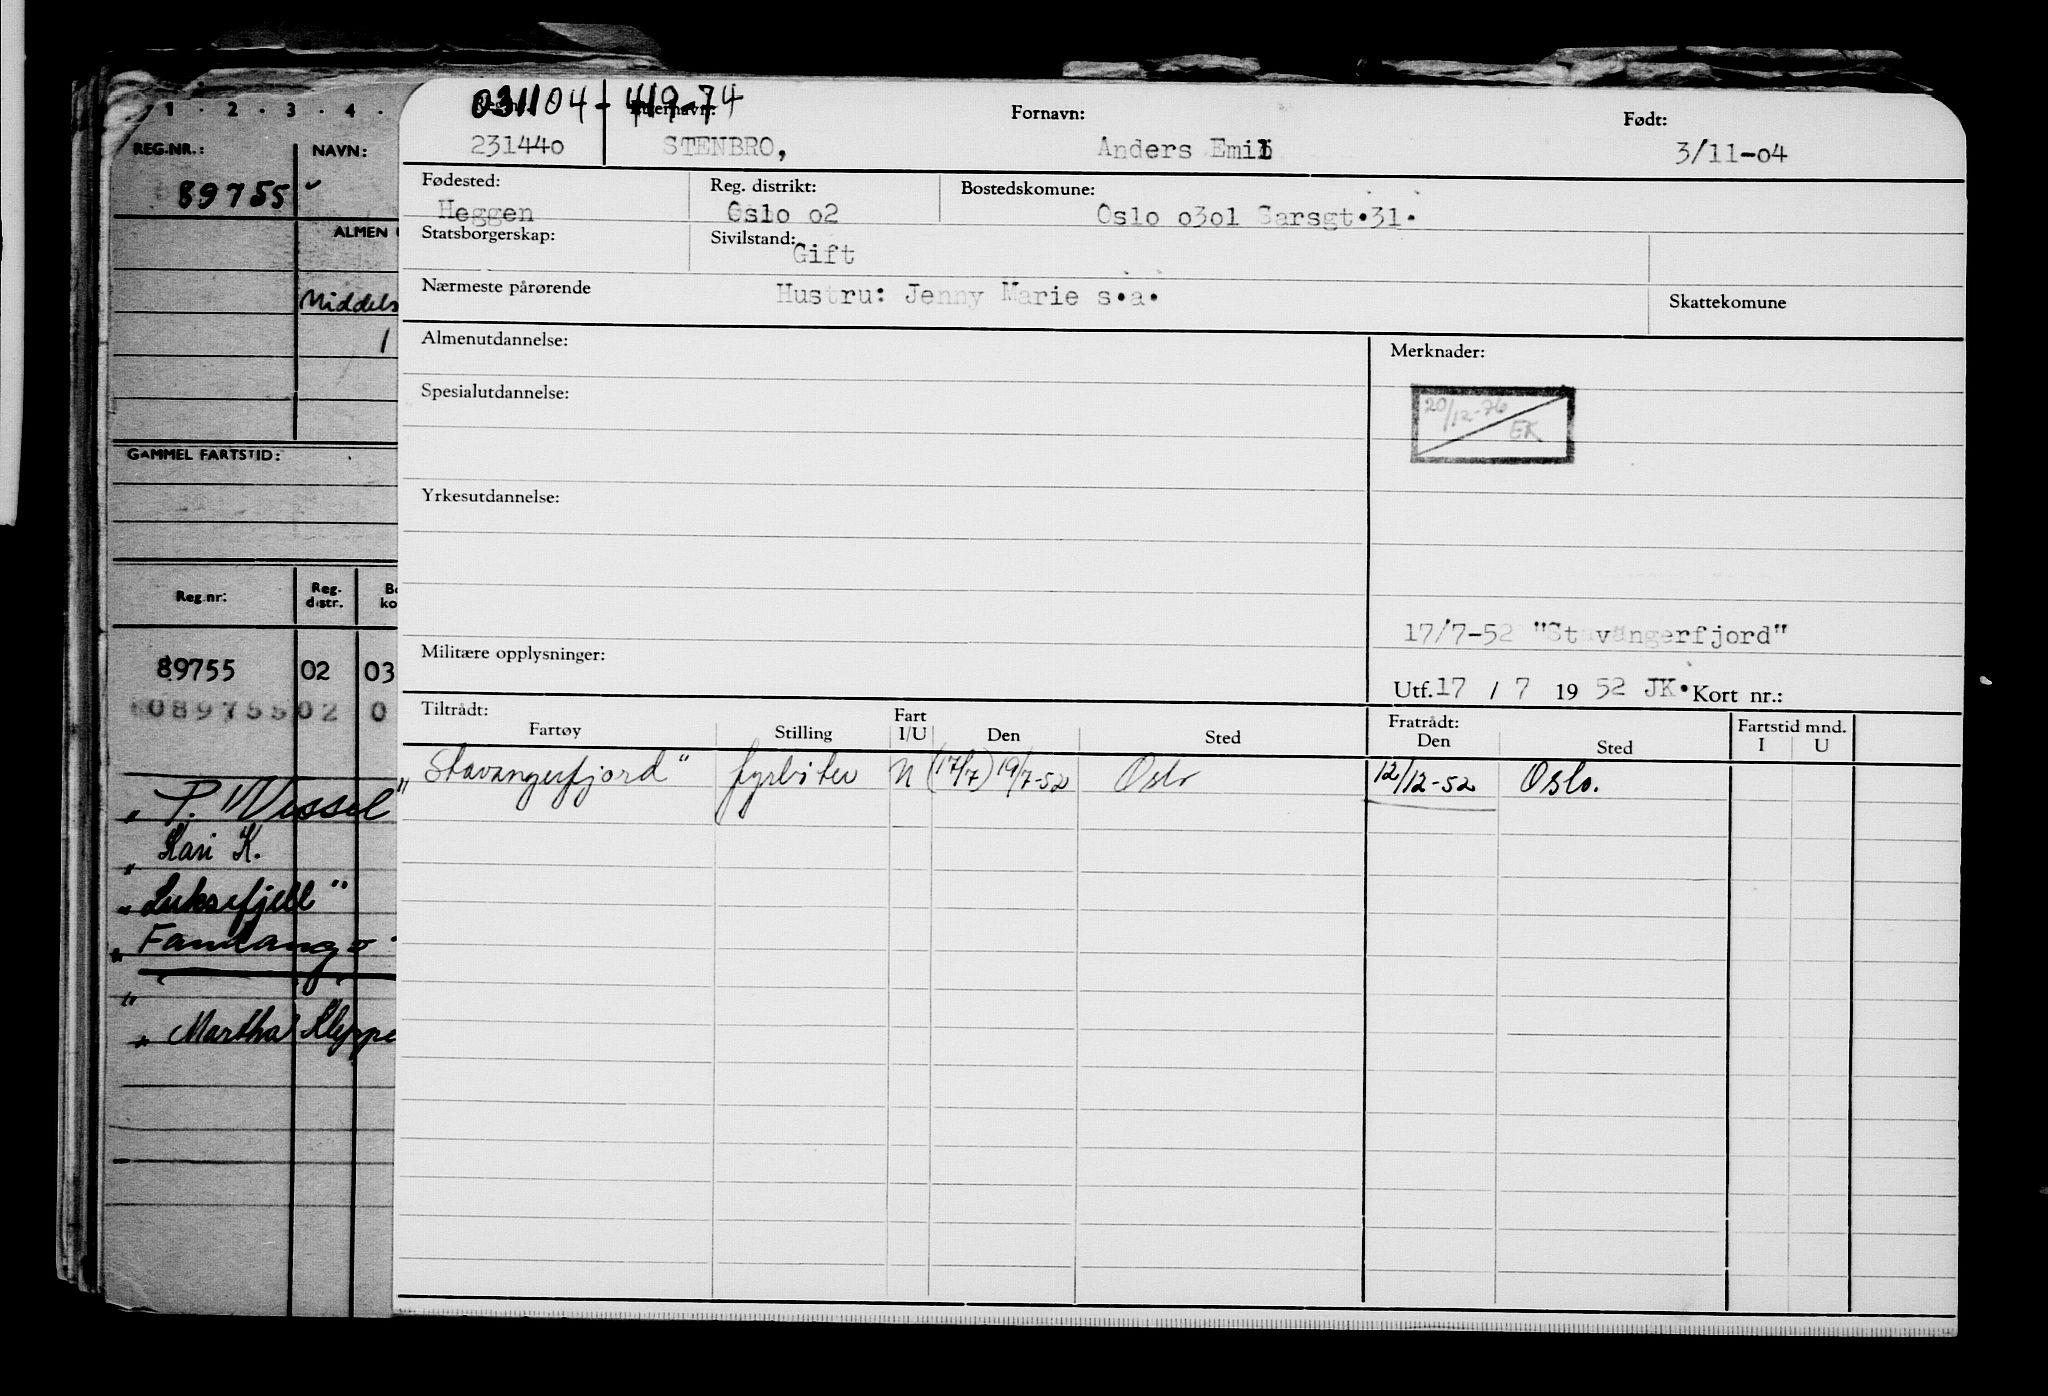 1 . 2 . 3 . 4 .
REG.NR.: NAVN:
89755
ALMEN
Middels
1
GAMMEL FARTSTID:
Reg.nr: Reg. distr.
89755 02 03
089755 02 0
" P. Wessel
" Kari K.
" Luksefjell "
" Fandango
" Martha Kleppe
031104 - 419-74
Etternavn: Fornavn: Født:
231440 STENBRO, Anders Emil 3/11-04
Fødested: Reg. distrikt: Bostedskomune:
Heggen Oslo o2 Oslo o3o1 Sarsgt.31.
Statsborgerskap: Sivilstand:
Gift
Nærmeste pårørende Hustru: Jenny Marie s.a. Skattekomune
Almenutdannelse: Merknader:
Spesialutdannelse: 20/12-76
EK
Yrkesutdannelse:
17/7-52 "Stavangerfjord"
Militære opplysninger:
Utf. 17 / 7 19 52 JK. Kort nr.:
Tiltrådt: Fratrådt: Fartstid mnd.
Fartøy Stilling Fart I/U Den Sted Den Sted I U
"Stavangerfjord" fyrbøter U (17/7) 19/7-52 Oslo 12/12-52 Oslo.